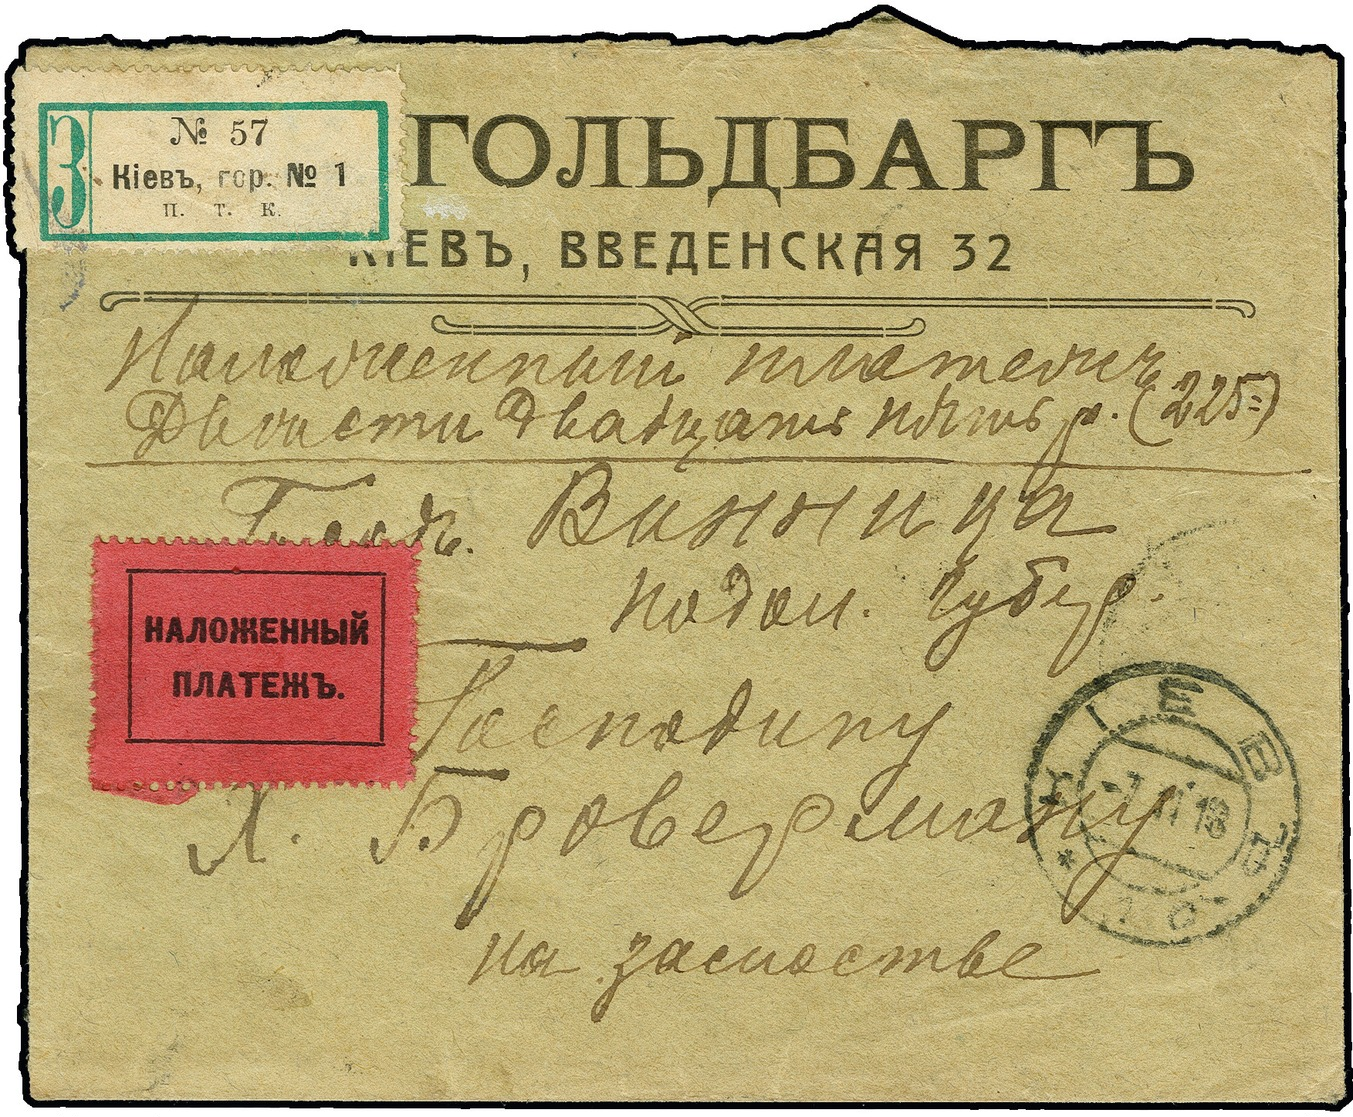 З
№ 57
Кіевъ, гор. № 1
п. т. к.
ГОЛЬДБАРГЪ
КІЕВЪ, ВВЕДЕНСКАЯ 32
Наложенный платежъ
Двѣсти двадцать пять р. (225=)
Винница
Подол. Губер.
НАЛОЖЕННЫЙ
ПЛАТЕЖЪ.
Господину
Х. Броверману
на
КІЕВЪ